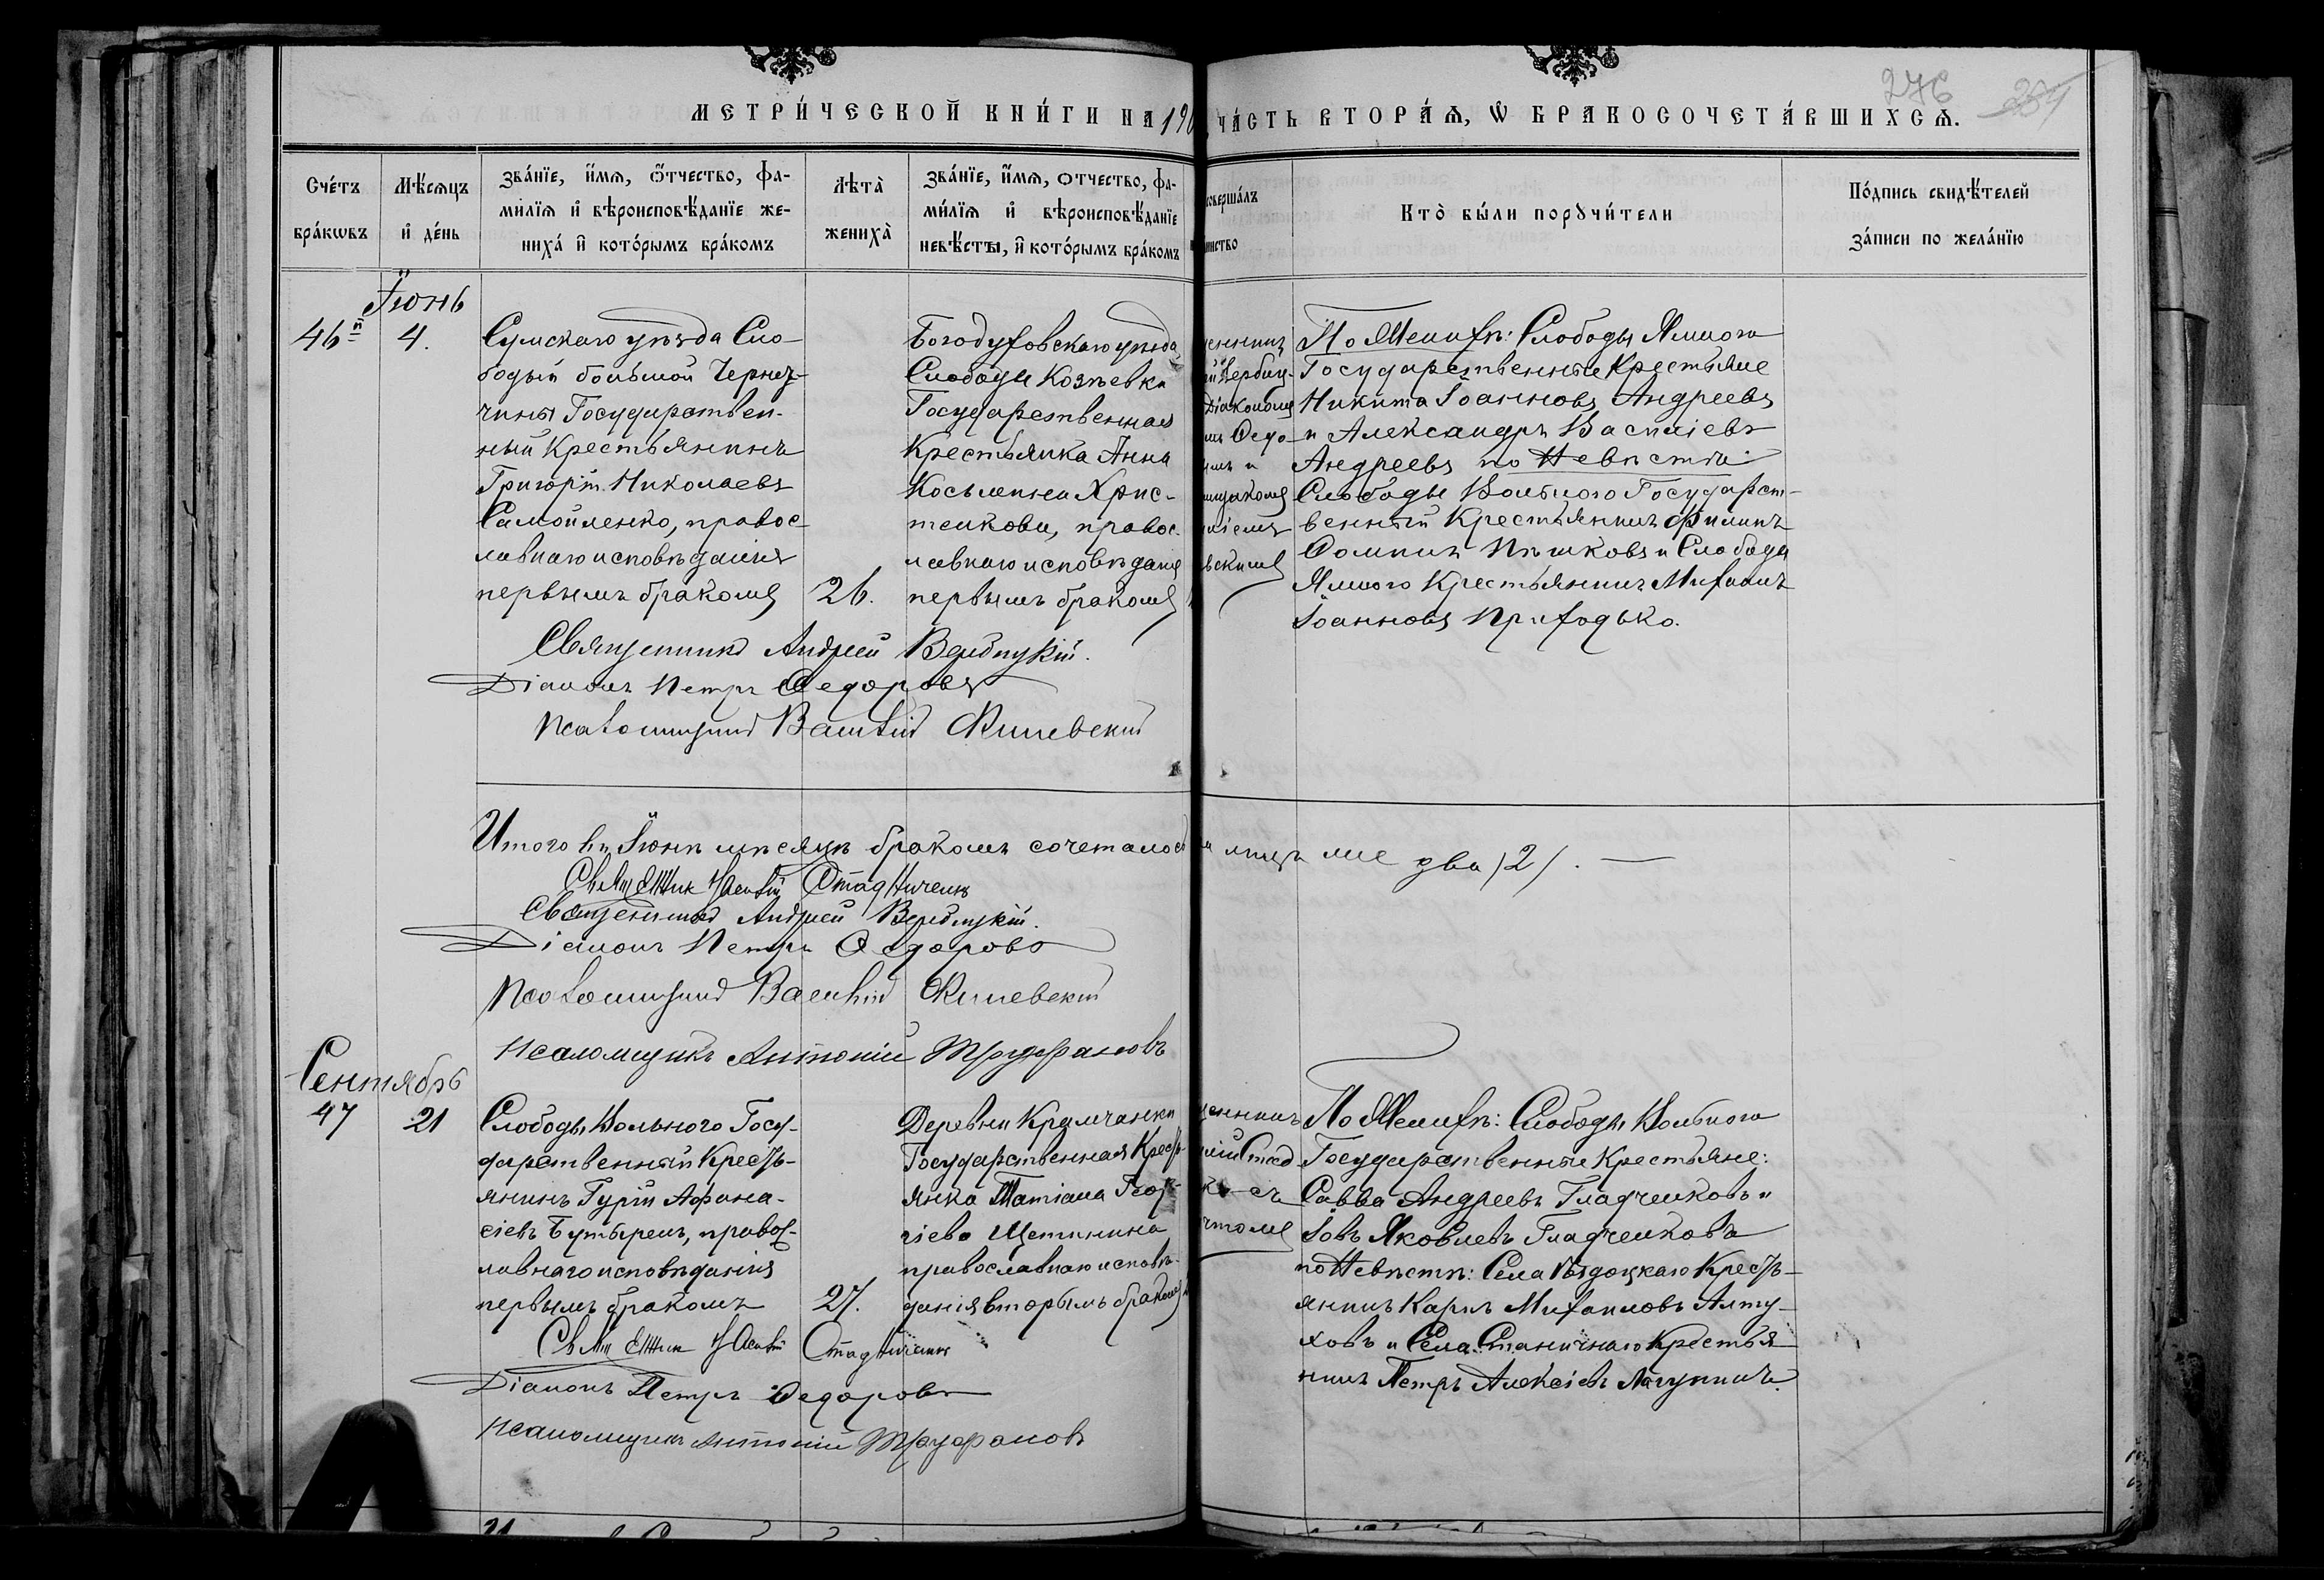 276 254
МЕТРИ́ЧЕСКОЙ КНИ́ГИ НА 190
ЧА́СТЬ ВТОРА́Ѧ, Ѡ БРАКОСОЧЕТА́ВШИХСѦ.
Сче́тъ бра́кѡвъ
Мѣ́сѧцъ и҆ де́нь
Зва́нїе, и҆́мѧ, ѻ҆́тчество, фа-
ми́лїѧ и҆ вѣроисповѣ́данїе же-
ниха́ и҆ кото́рымъ бра́комъ
Лѣта̀
жениха̀
Зва́нїе, и҆́мѧ, ѻ҆́тчество, фа-
ми́лїѧ и҆ вѣроисповѣ́данїе
невѣ́сты, и҆ кото́рымъ бра́комъ
совершалъ
инство
Кто̀ бы́ли порꙋчи́тели
По́дпись свидѣ́телей
за́писи по жела́нїю
Іюнь
46й
4.
Сумскаго уѣзда Сло-
бодый большой Чернет-
чины Государствен-
ный Крестьянинъ
Григорій Николаевъ
Самойленко, правос-
лавнаго исповѣданія
первымъ бракомъ
26.
Богодуховскаго уѣзда
Слободы Козѣевки
Государственная
Крестьянка Анна
Косьмина Хрис-
тенкова, правос-
лавнаго исповѣданія
первымъ бракомъ
щенникъ
й Вербиц-
Діакономъ
мъ Ѳедо-
ымъ и
мщикомъ
иліемъ
вскимъ
По Женихѣ: Слободы Ямного
Государственные Крестьяне
Никита Іоанновъ Андреевъ
и Александръ Василіевъ
Андреевъ по Невѣстѣ:
Слободы Вольного Государст-
венный Крестьянинъ Филипъ
Ѳоминъ Пѣшковъ и Слободы
Ямного Крестьянинъ Михаилъ
Іоанновъ Приходько.
Священникъ Андрей Вербицкій.
Діаконъ Петръ Ѳедоровъ
Псаломщикъ Василій
Итого въ Іюнѣ мѣсяцѣ бракомъ сочеталось
два /2/.
Священник Стадниченко
Священникъ Андрей Вербицкій.
Діаконъ Петръ Ѳедоровъ
Псаломщикъ Василій
Псаломщикъ Антоній Труфановъ
Сентябрь
47
21
Слободы Вольного Госу-
дарственный Кресть-
янинъ Гурій Афана-
сіевъ Бутыремъ, правос-
лавнаго исповѣданія
первымъ бракомъ
27.
Деревни Крамчанки
Государственная Кресть-
янка Татіана Геор-
гіева Щетинина
православнаго исповѣ-
данія вторымъ бракомъ
щенникъ
Стад-
съ
чтомъ
По Женихѣ: Слободы Вольного
Государственные Крестьяне:
Савва Андреевъ Гладченковъ и
Іовъ Яковлевъ Гладченковъ
по Невѣстѣ: Села Бѣдоцкаго Кресть-
янинъ Карпъ Михаиловъ Алту-
ховъ и Села Станичнаго Крестья-
нинъ Петръ Алексіевъ Лагунинъ.
Священник Стадниченко
Діаконъ Петръ Ѳедоровъ
Псаломщикъ Антоній Труфановъ